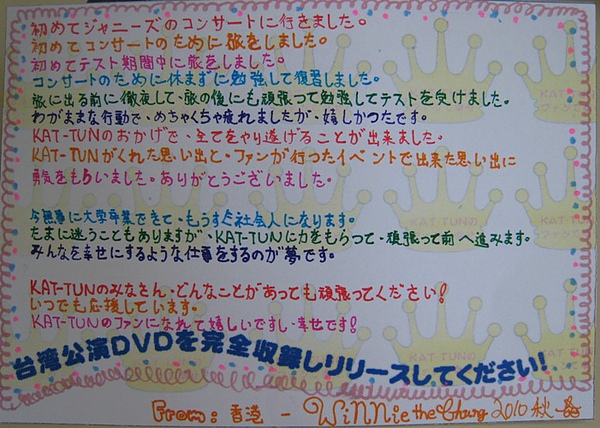 初めてジャニーズのコンサートに行きました。
初めてコンサートのために旅をしました。
初めてテスト期間中に旅をしました。
コンサートのために休まずに勉強して復習しました。
旅に出る前に徹夜して、旅の後にも頑張って勉強してテストを受けました。
わがままな行動で、めちゃくちゃ疲れましたが、嬉しかつたです。
KAT-TUNのおかげで、全てをやり遂げることが出来ました。
KAT-TUNがくれた思い出と、ファンが行つたイベントで出来た思い出に
勇気をもらいました。ありがとうございました。
今無事に大学卒業できて、もうすぐ社会人になります。
たまに迷うこともありますが、KAT-TUNに力をもらって、頑張って前へ進みます。
みんなを幸せにするような仕事をするのが夢です。
KAT-TUNのみなさん、どんなことがあっても頑張ってください!
いつでも応援しています。
KAT-TUNのファンになれて嬉しいですし、幸せです!
台湾公演DVDを完全収録しリリースしてください!
From: 香港 - WiNNie the Chung 2010 秋